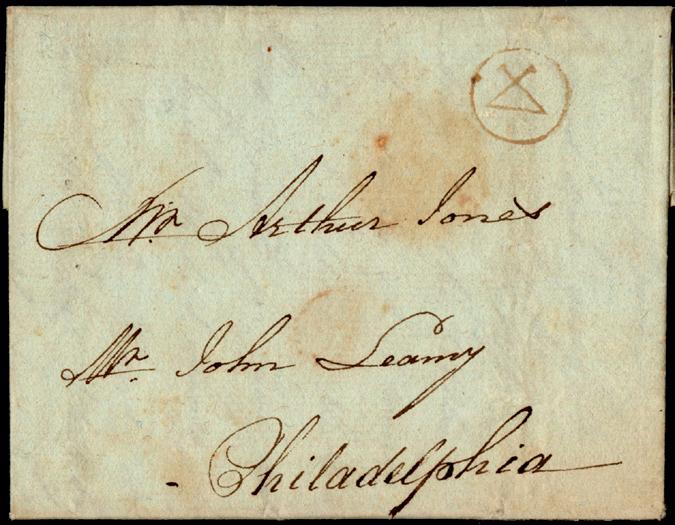 Mr. Arthur Jones
Mr. John Leamy
Philadelphia